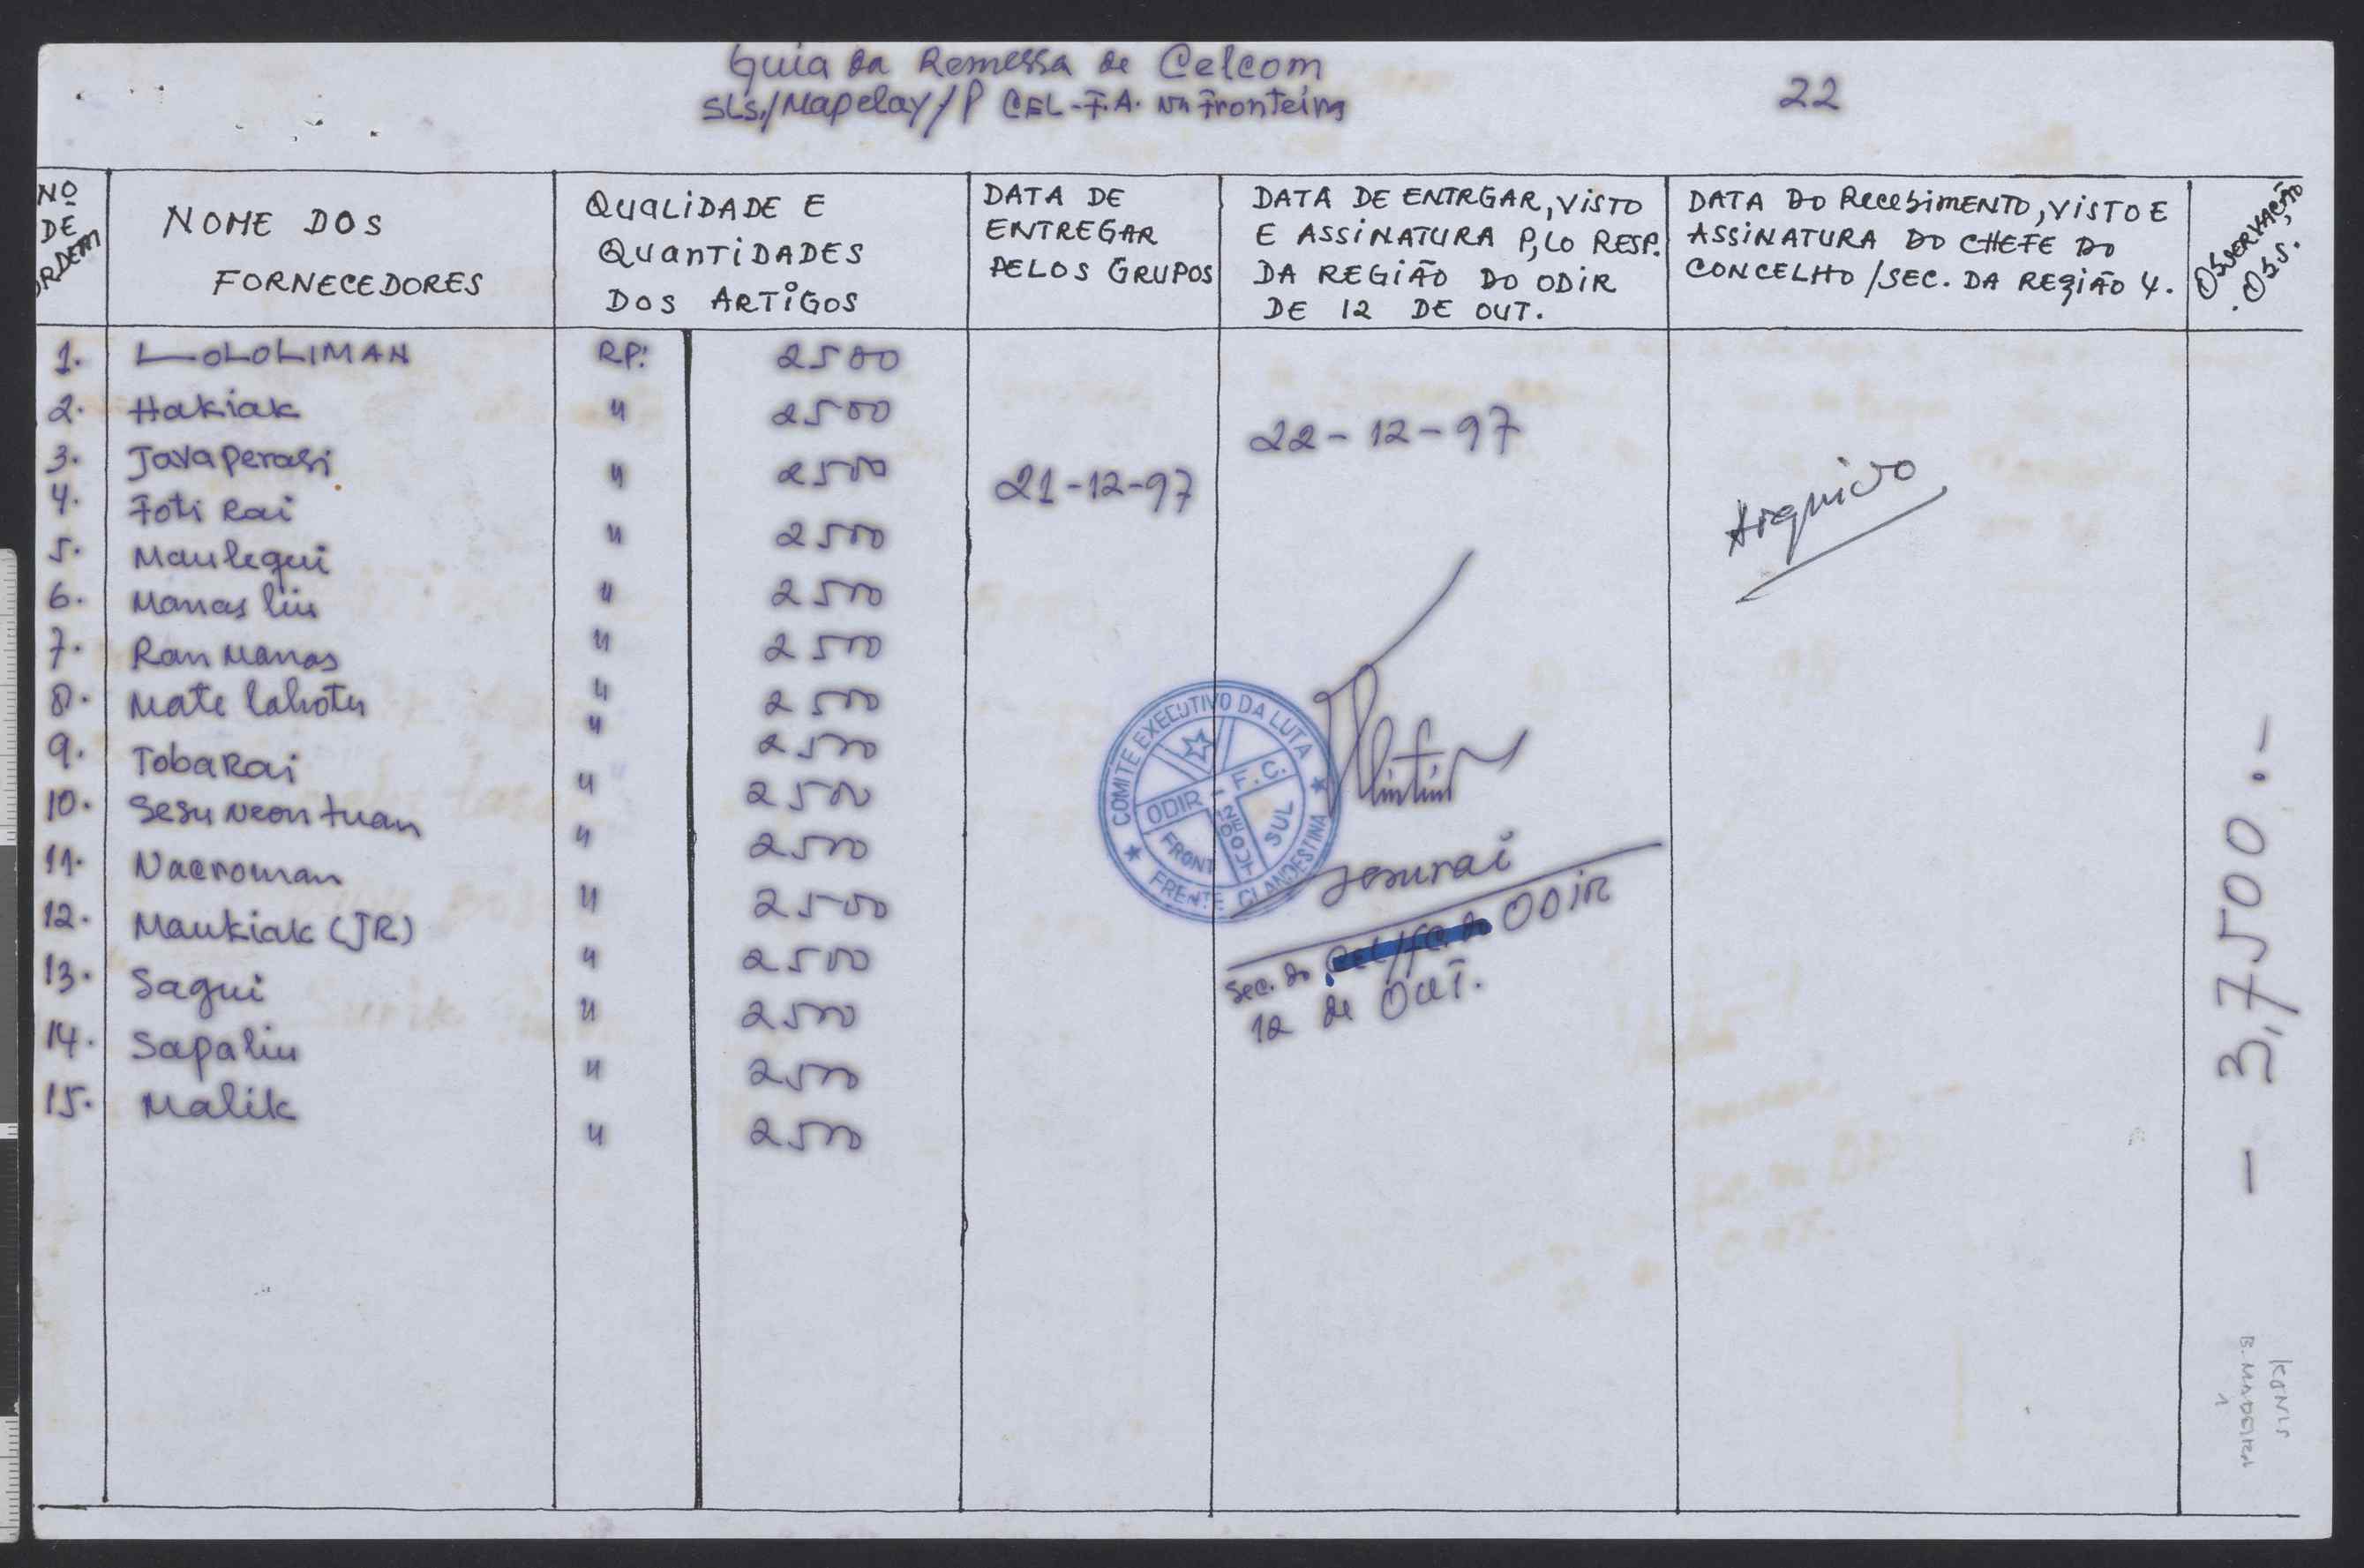 Guia da Remessa de Celcom
SLS./Mapelay/P CEL-F.A. Na Fronteira
22
Nº DE ORDEM
NOME DOS FORNECEDORES
QUALIDADE E QUANTIDADES DOS ARTIGOS
DATA DE ENTREGAR PELOS GRUPOS
DATA DE ENTRGAR, VISTO E ASSINATURA P,LO RESP. DA REGIÃO DO ODIR DE 12 DE OUT.
DATA DO RECEBIMENTO, VISTO E ASSINATURA DO CHEFE DO CONCELHO / SEC. DA REGIÃO 4.
OBSERVAÇÃO, OBS.
1. LOLOLIMAN RP: 2500
2. Hakiak " 2500
3. Javaperasi " 2500
4. Foti Rai " 2500
5. Maulequi " 2500
6. Manas liu " 2500
7. Ran Manas " 2500
8. Mate lahotu " 2500
9. Toba Rai " 2500
10. Sesu Neon tuan " 2500
11. Nacroman " 2500
12. Maukiak (JR) " 2500
13. Sagui " 2500
14. Sapaliu " 2500
15. Malik " 2500
21-12-97
22-12-97
COMITE EXECUTIVO DA LUTA
FRENTE CLANDESTINA
ODIR - F.C.
FRONT SUL
Sec. do ODIR
12 de OUT.
Arquivo
- 3,7500.-
KONIS